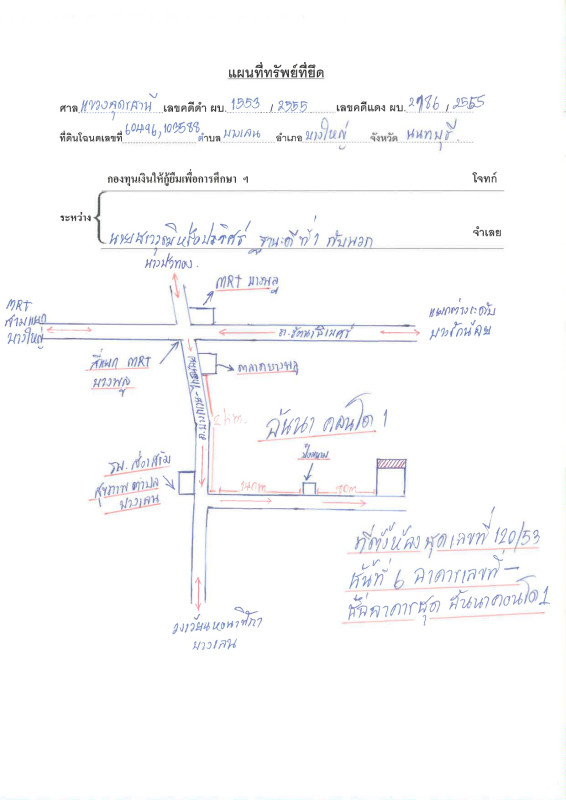 แผนที่ทรัพย์ที่ยึด
ศาล แขวงอุดรธานี เลขคดีดำ ผบ. 1553 / 2555 เลขคดีแดง ผบ. 2986 / 2555
ที่ดินโฉนดเลขที่ 60496,103588 ตำบล บางเลน อำเภอ บางใหญ่ จังหวัด นนทบุรี.
กองทุนเงินให้กู้ยืมเพื่อการศึกษา ฯ โจทก์
ระหว่าง
ที่ 1 กับพวก จำเลย
บางบัวทอง.
MRT บางพลู
MRT
สามแยก
บางใหญ่
ถ.รัตนาธิเบศร์
แยกต่างระดับ
บางรักน้อย
สี่แยก MRT
บางพลู
ตลาดบางพลู
2 km.
ฉันนา คอนโด 1
รพ. ส่งเสริม
สุขภาพ ตำบล
บางเลน
140m
70m
ที่ตั้งห้องชุดเลขที่ 120/53
ชั้นที่ 6 อาคารเลขที่ -
ชื่ออาคารชุด ฉันนาคอนโด 1
วงเวียนหอนาฬิกา
บางเลน